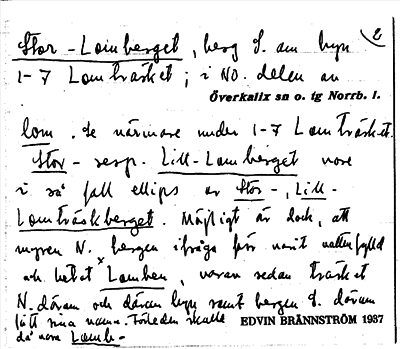 2
Stor-Lomberget, berg S. om byn
1-7 Lomträsket; i NO. delen av
Överkalix sn o. tg Norrb. l.
lom. Se närmare under 1-7 Lomträsket.
Stor- resp. Lill-Lomberget vore
i så fall ellips av Stor-, Lill-
Lomträskberget. Möjligt är dock, att
myren N. bergen ifråga förr varit vattenfylld
och hetat Lomben, varav sedan träsket
N. därom och därav byn samt bergen S. därom
fått sina namn. Förleden skulle
då vara Lomb-
EDVIN BRÄNNSTRÖM 1937